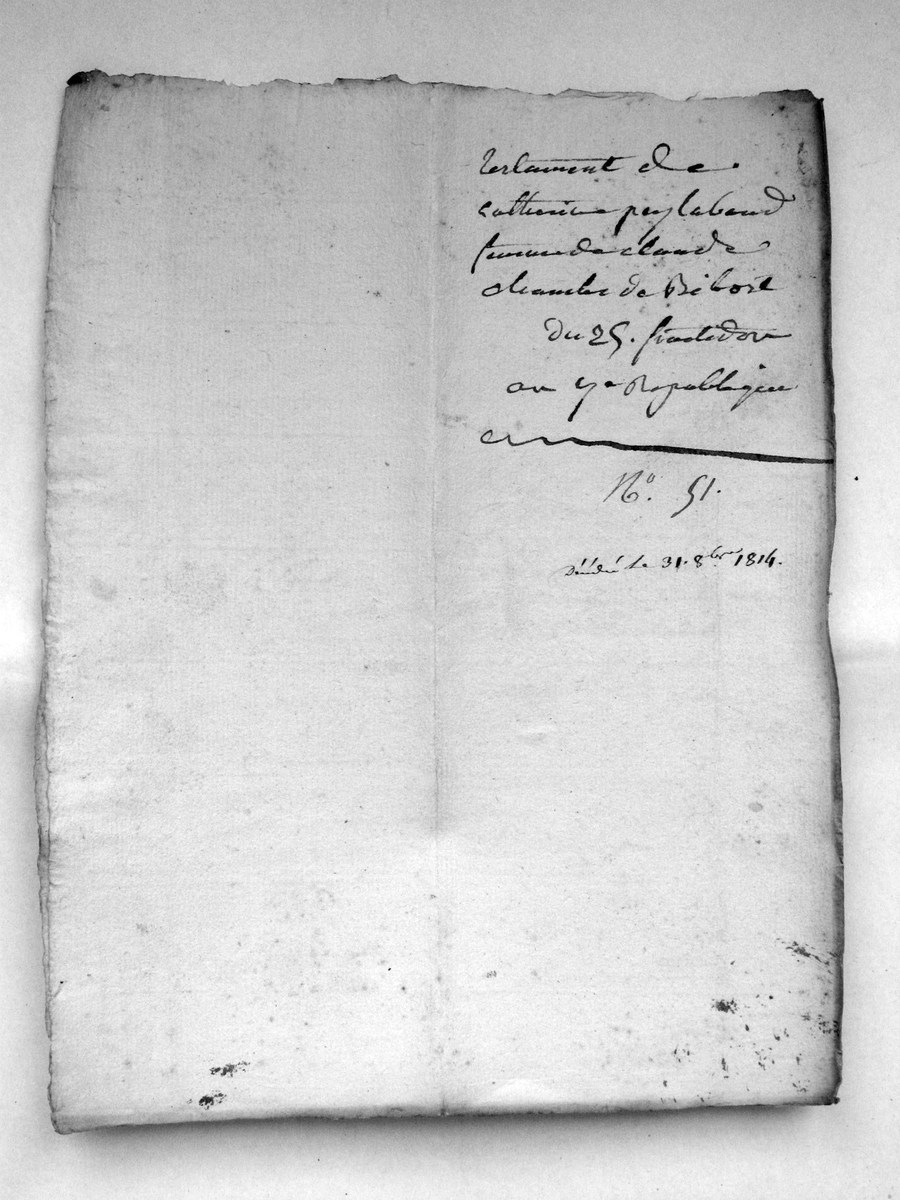 testament de
catherine peylaboud
femme de claude
chambe de Bibost
du 25. fructidor
an 7e Republique
No. 51.
le 31. 8bre 1814.